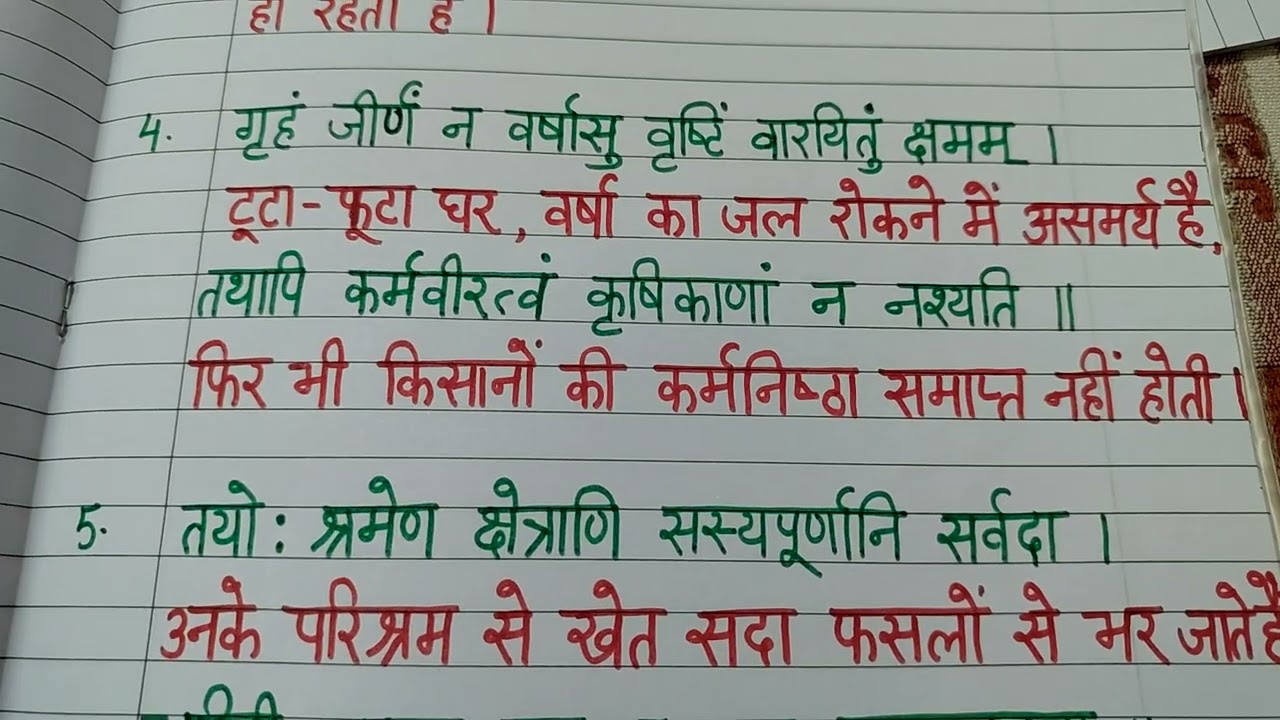 हो रहता है ।
4. गृहं जीर्णं न वर्षासु वृष्टिं वारयितुं क्षमम् ।
टूटा-फूटा घर, वर्षा का जल रोकने में असमर्थ है,
तथापि कर्मवीरत्वं कृषिकाणां न नश्यति ॥
फिर भी किसानों की कर्मनिष्ठा समाप्त नहीं होती ।
5. तयो: श्रमेण क्षेत्राणि सस्यपूर्णानि सर्वदा ।
उनके परिश्रम से खेत सदा फसलों से भर जाते है